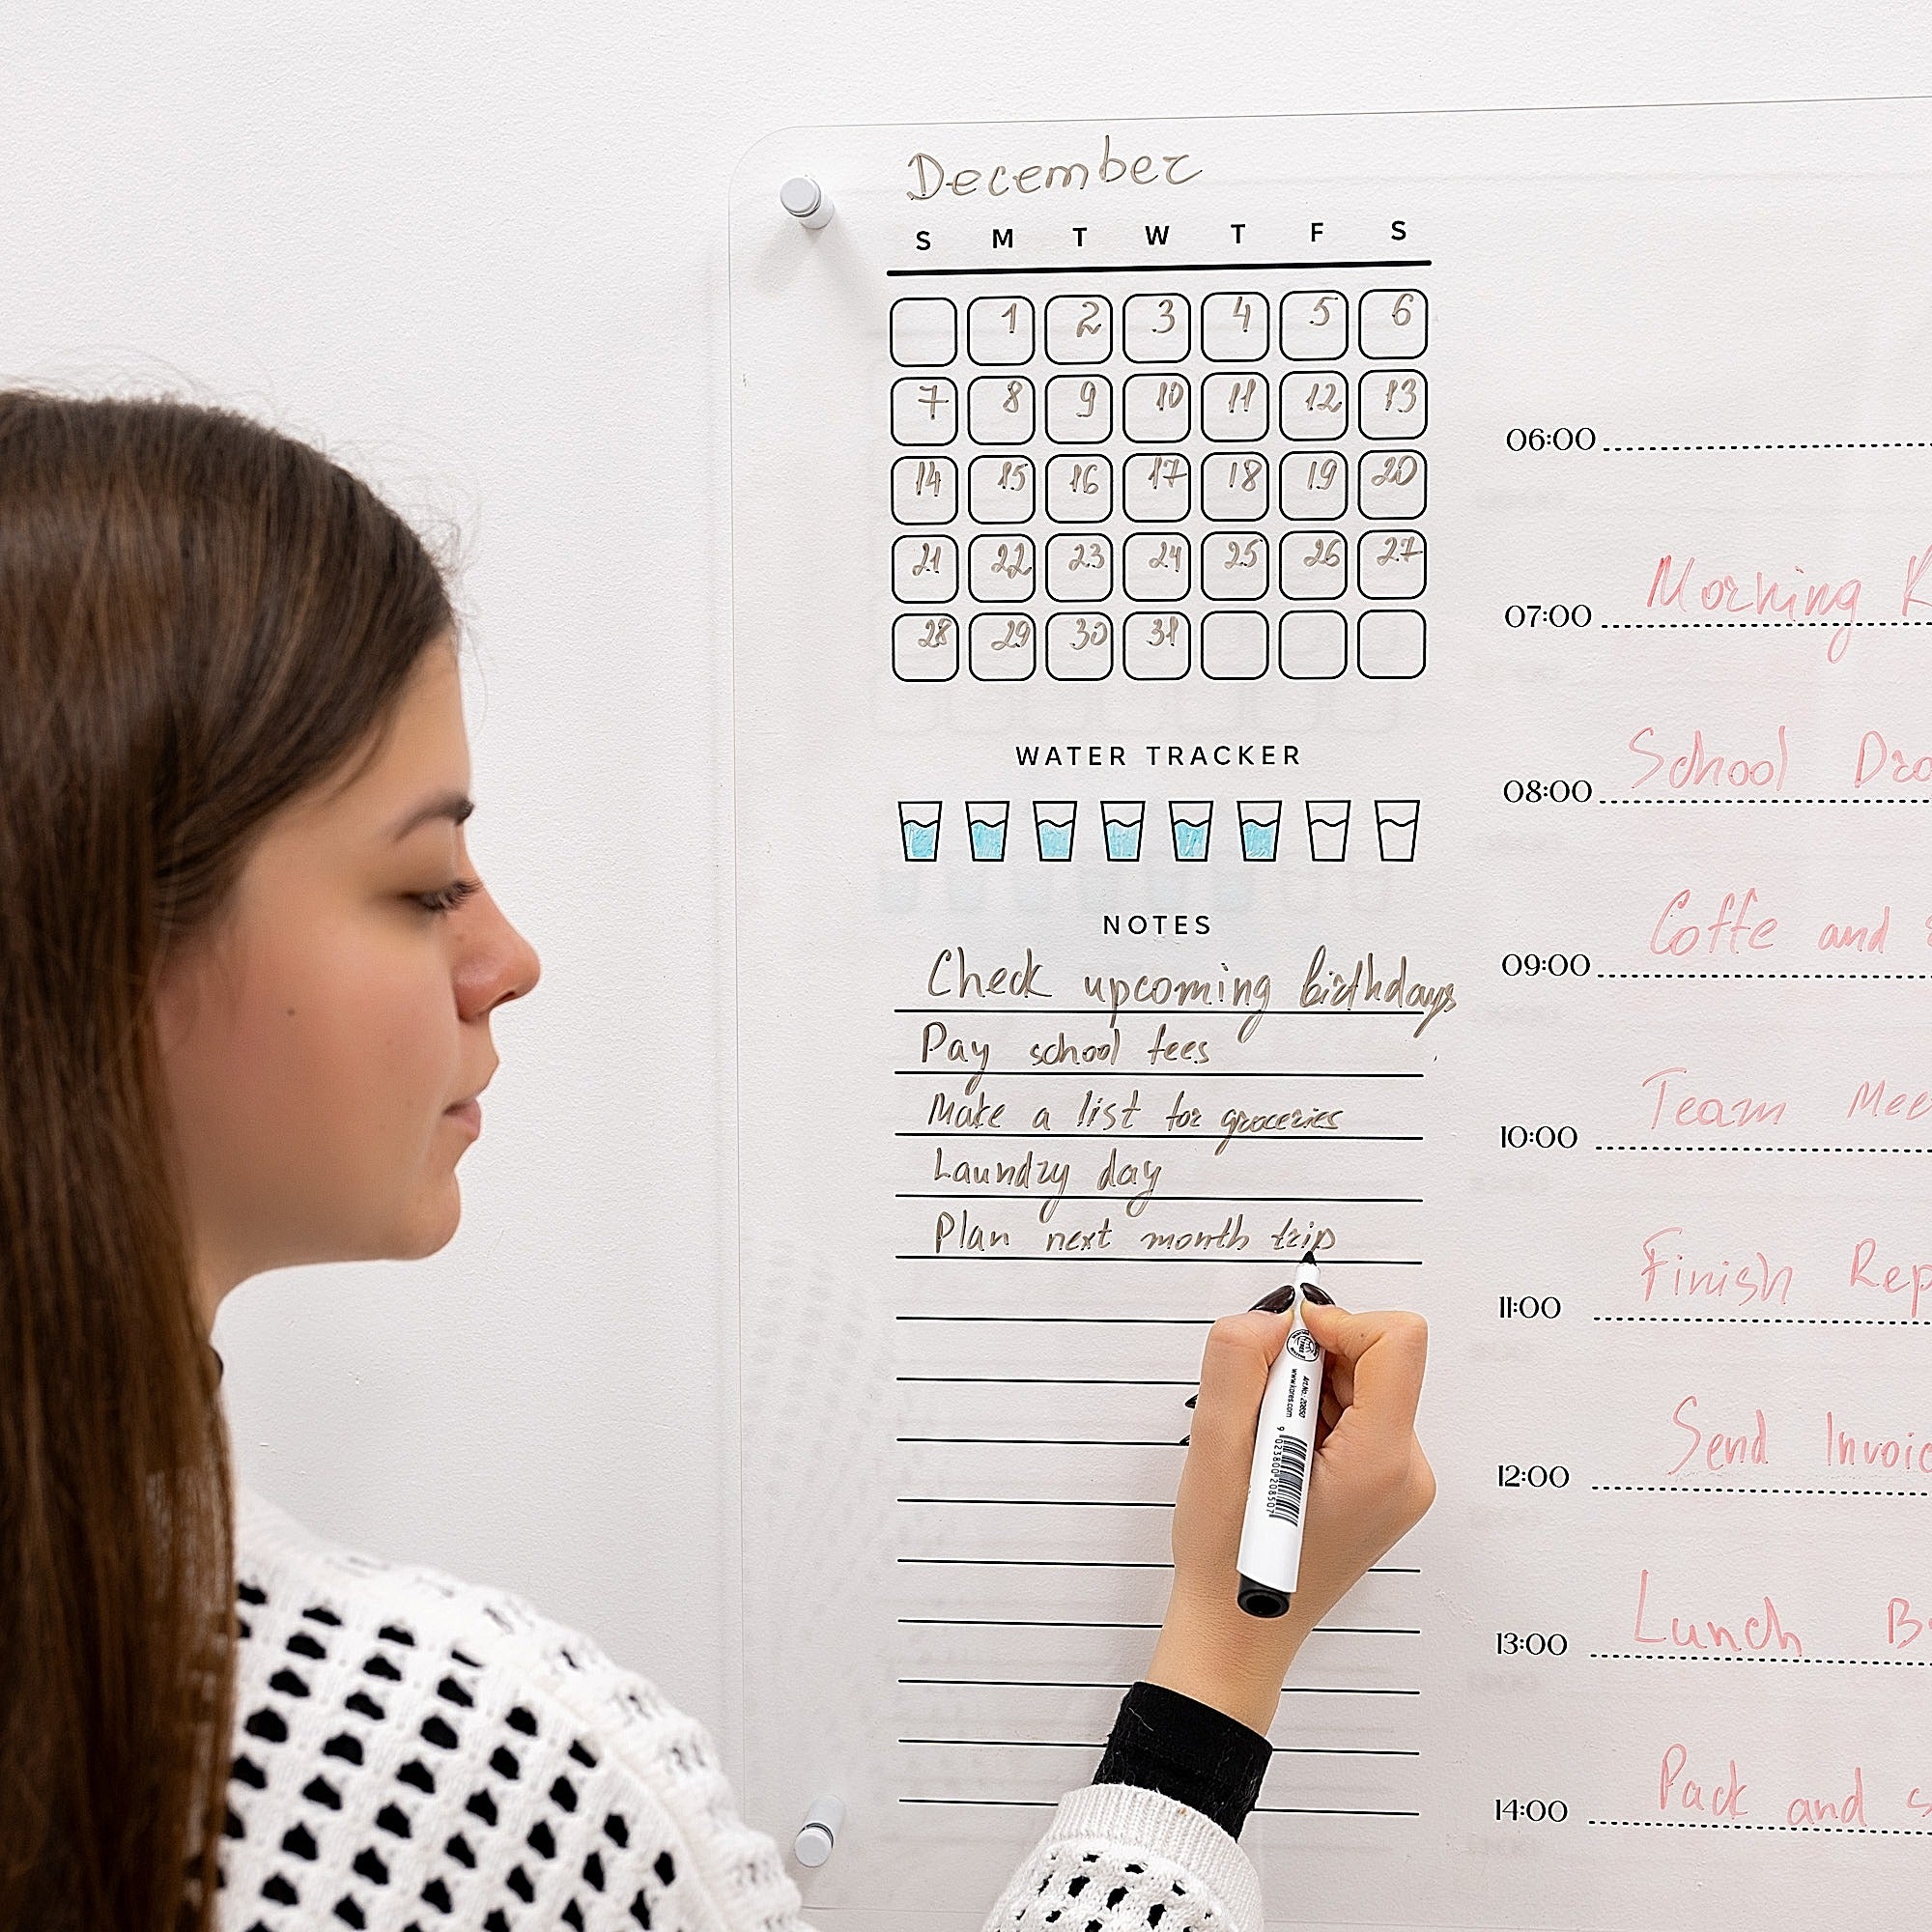 December
S M T W T F S
1 2 3 4 5 6
7 8 9 10 11 12 13
14 15 16 17 18 19 20
21 22 23 24 25 26 27
28 29 30 31
WATER TRACKER
NOTES
Check upcoming birthdays
Pay school fees
Make a list for groceries
Laundry day
Plan next month trip
06:00
07:00 Morning
08:00 School
09:00 Coffe and
10:00 Team
11:00 Finish
12:00 Send
13:00 Lunch
14:00 Pack and
Art.No.: 20850
www.kores.com
9 023800 208507